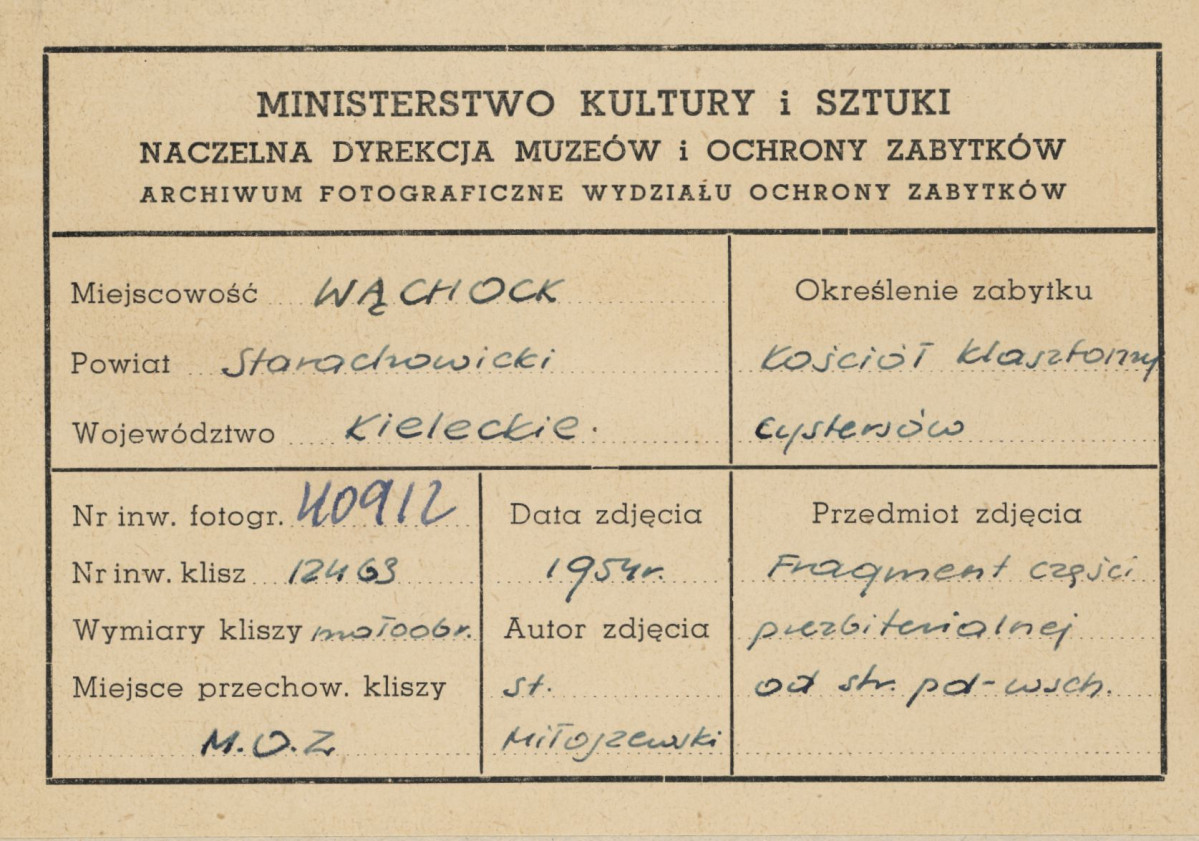 MINISTERSTWO KULTURY i SZTUKI
NACZELNA DYREKCJA MUZEÓW i OCHRONY ZABYTKÓW
ARCHIWUM FOTOGRAFICZNE WYDZIAŁU OCHRONY ZABYTKÓW
Miejscowość WĄCHOCK
Powiat Starachowicki
Województwo Kieleckie.
Określenie zabytku
Kościół klasztorny
cystersów
Nr inw. fotogr. 40912
Nr inw. klisz 12463
Wymiary kliszy małoobr.
Miejsce przechow. kliszy
M.O.Z
Data zdjęcia
1954r.
Autor zdjęcia
St.
Miłojzewski
Przedmiot zdjęcia
Fragment części
prezbiterialnej
od str. pd-wsch.